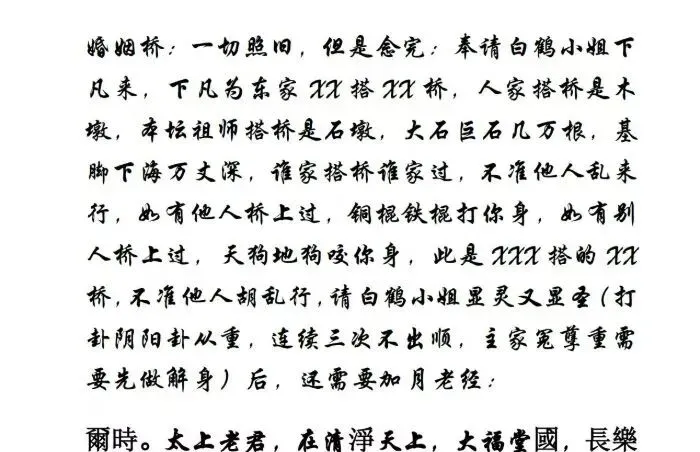 婚姻桥：一切照旧，但是念完：奉请白鹤小姐下
凡来，下凡为东家XX搭XX桥，人家搭桥是木
墩，本坛祖师搭桥是石墩，大石巨石几万根，基
脚下海万丈深，谁家搭桥谁家过，不准他人乱来
行，如有他人桥上过，铜棍铁棍打你身，如有别
人桥上过，天狗地狗咬你身，此是XXX搭的XX
桥，不准他人胡乱行，请白鹤小姐显灵又显圣（打
卦阴阳卦从重，连续三次不出顺，主家冤孽重需
要先做解身）后，还需要加月老经：
爾時。太上老君，在清淨天上，大福堂國，長樂